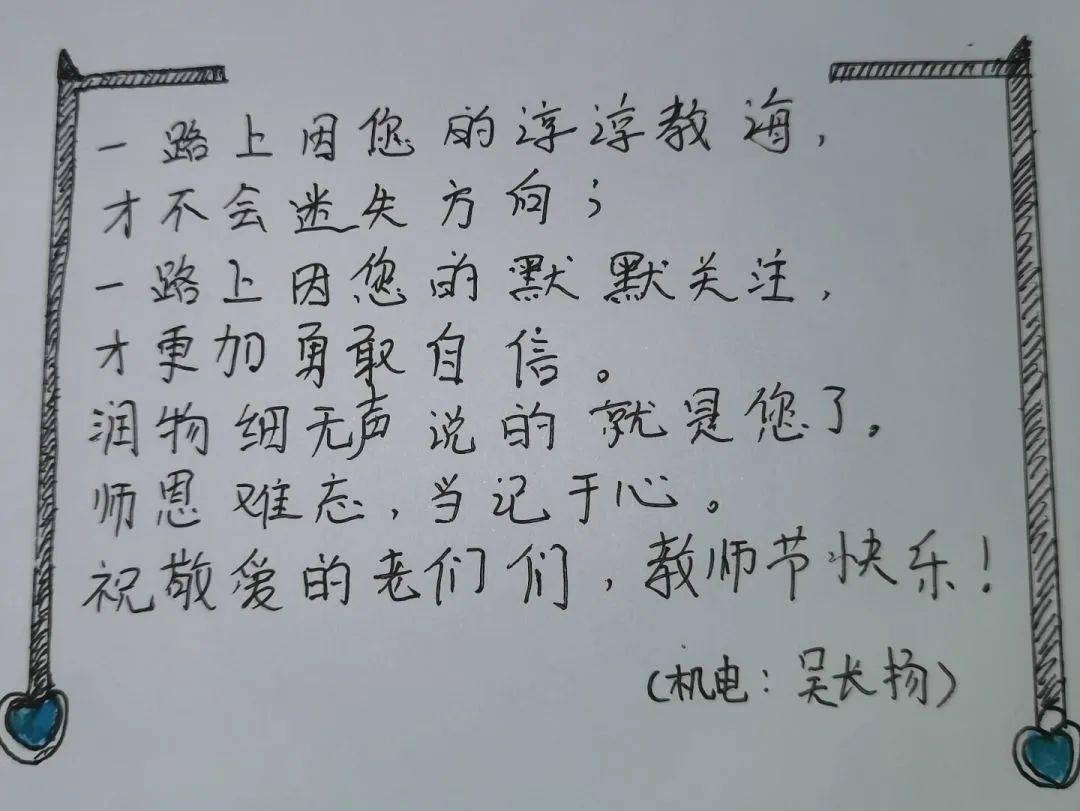 一路上因您的淳淳教海，
才不会迷失方向；
一路上因您的默默关注，
才更加勇敢自信。
润物细无声说的就是您了。
师恩难忘，当记于心。
祝敬爱的老们们，教师节快乐！
（机电：吴长扬）